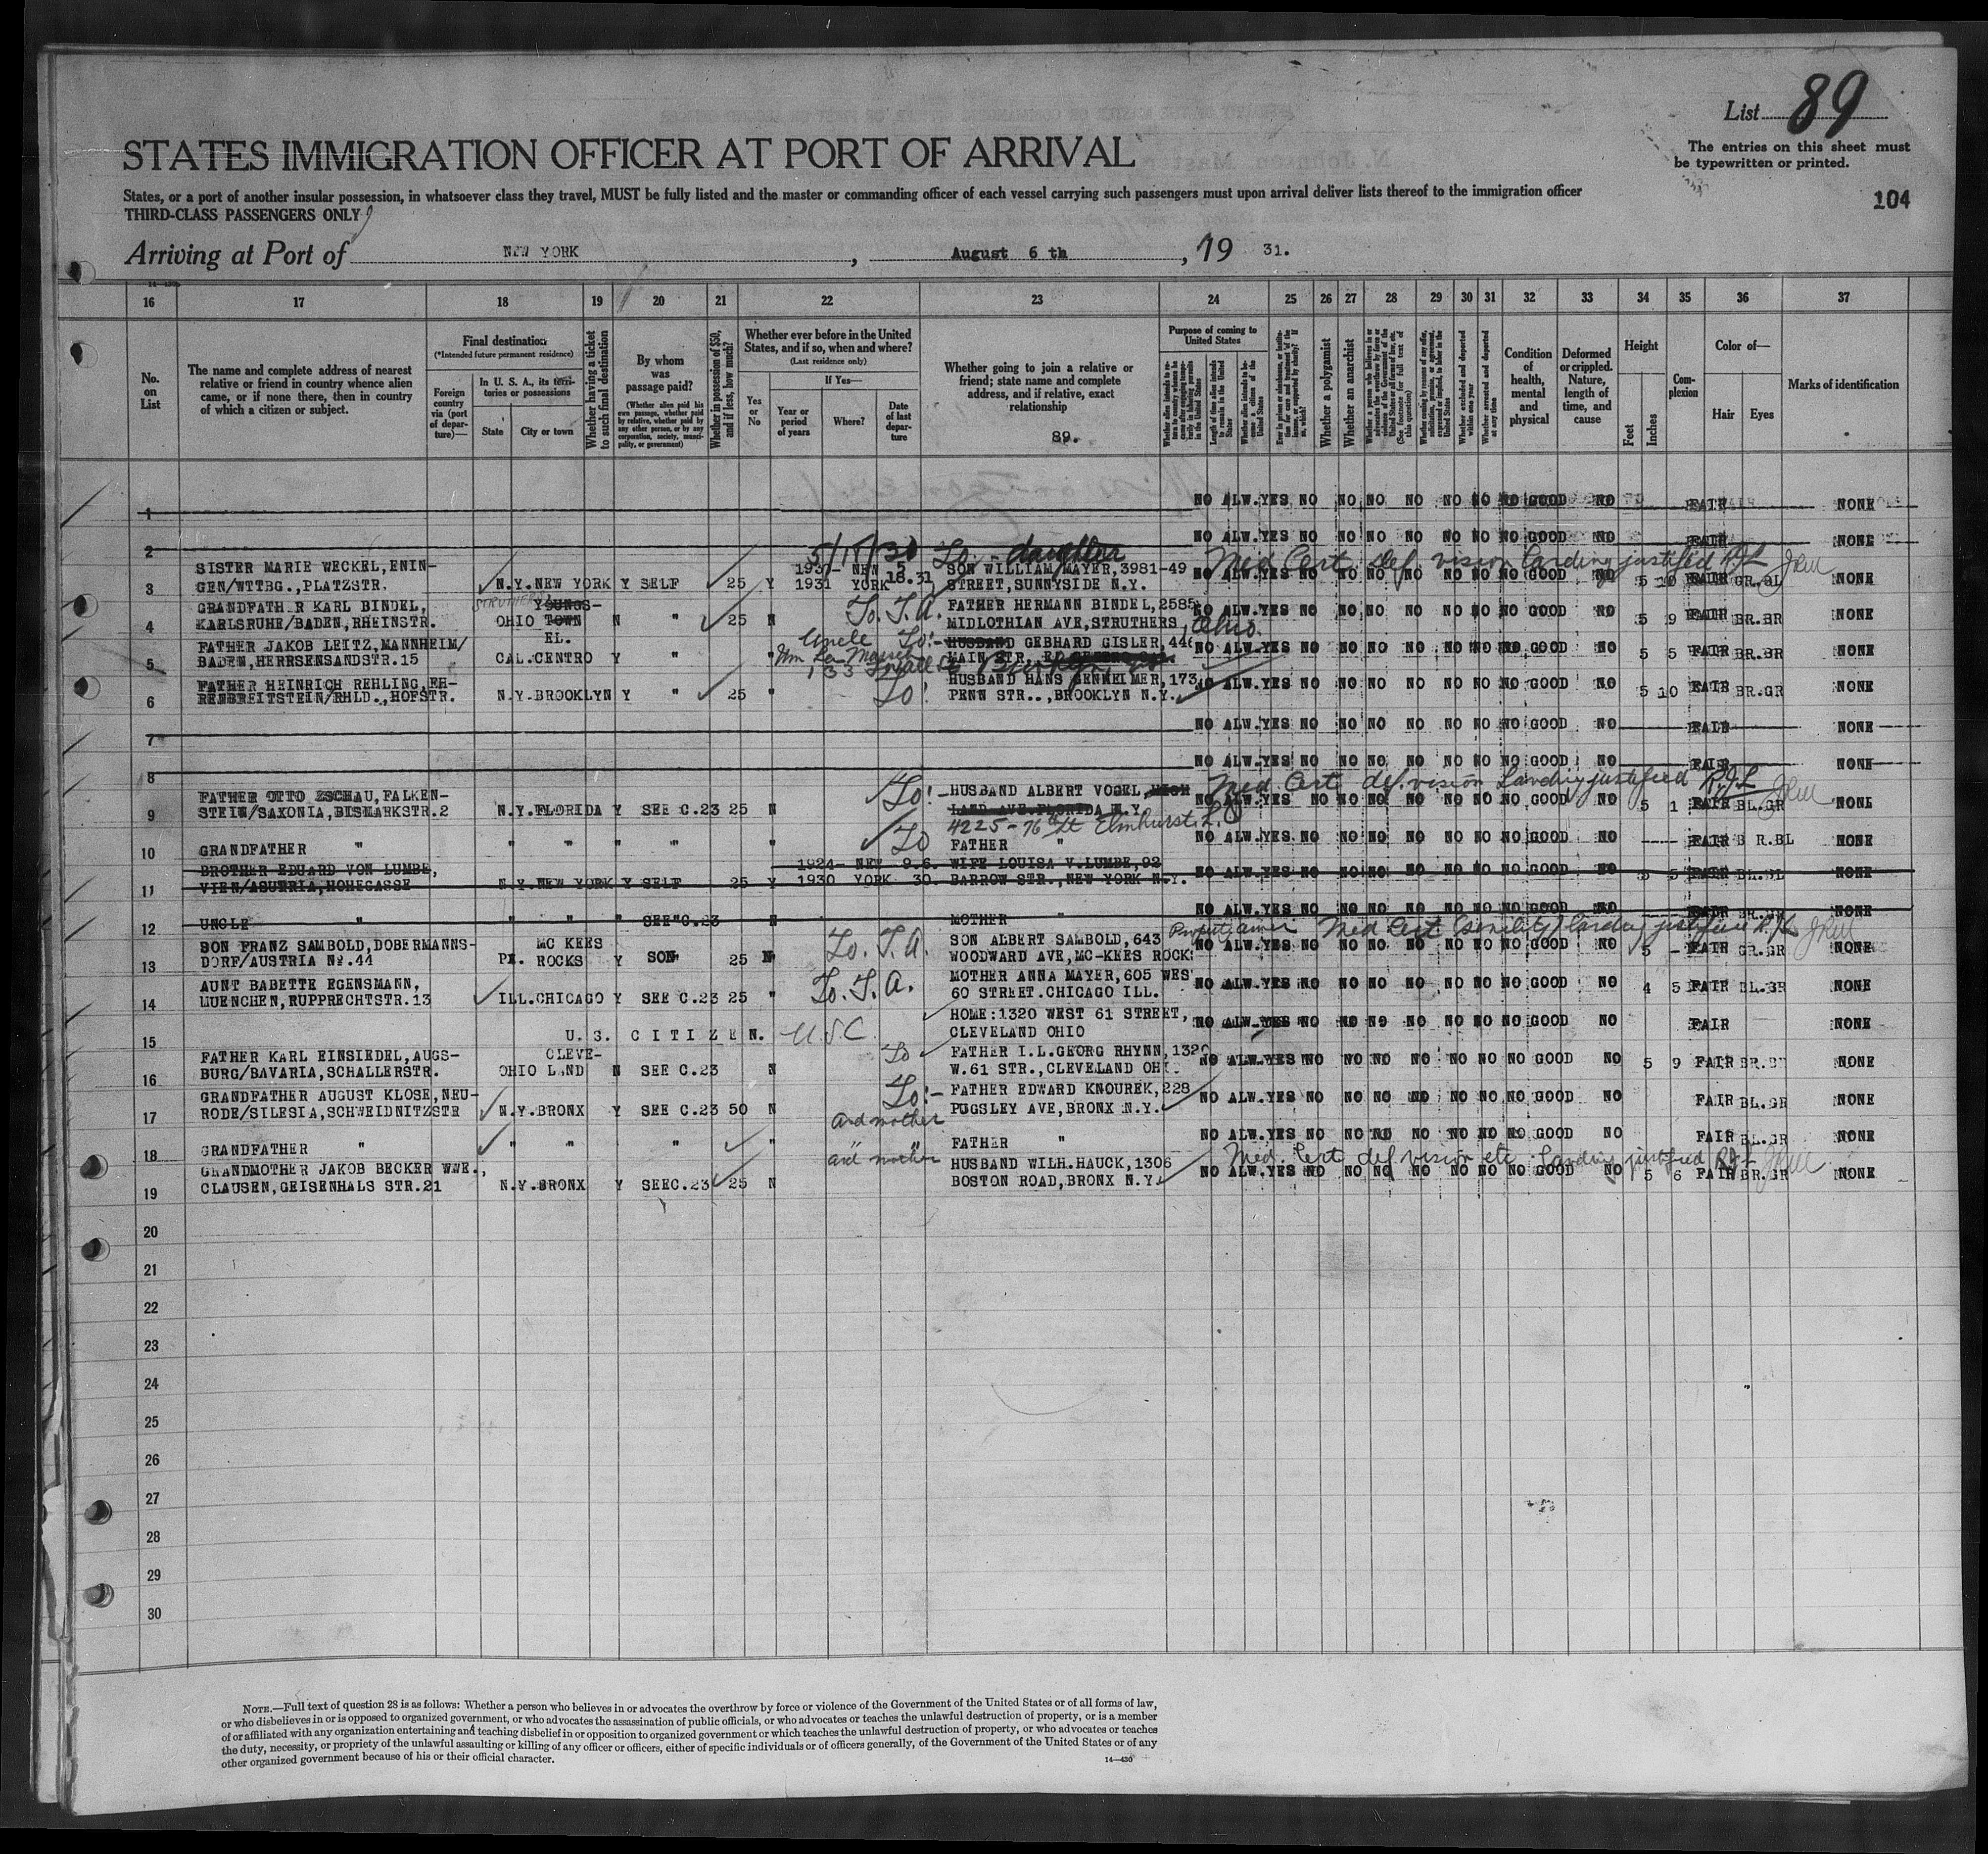 List 89
The entries on this sheet must
be typewritten or printed.
STATES IMMIGRATION OFFICER AT PORT OF ARRIVAL
States, or a port of another insular possession, in whatsoever class they travel, MUST be fully listed and the master or commanding officer of each vessel carrying such passengers must upon arrival deliver lists thereof to the immigration officer
THIRD-CLASS PASSENGERS ONLY
104
Arriving at Port of NEW YORK, August 6 th, 19 31.
16 17 18 19 20 21 22 23 24 25 26 27 28 29 30 31 32 33 34 35 36 37
No. on List
The name and complete address of nearest
relative or friend in country whence alien
came, or if none there, then in country
of which a citizen or subject.
Final destination
(*Intended future permanent residence)
Foreign country via (port of departure)—
In U. S. A., its territories or possessions
State
City or town
Whether having a ticket to such final destination
By whom was passage paid?
(Whether alien paid his own passage, whether paid by relative, whether paid by any other person, or by any corporation, society, municipality, or government)
Whether in possession of $50, and if less, how much?
Whether ever before in the United
States, and if so, when and where?
(Last residence only)
Yes or No
If Yes—
Year or period of years
Where?
Date of last departure
Whether going to join a relative or
friend; state name and complete
address, and if relative, exact
relationship
89.
Purpose of coming to United States
Whether a polygamist
Whether an anarchist
Condition of health, mental and physical
Deformed or crippled. Nature, length of time, and cause
Height
Feet
Inches
Complexion
Color of—
Hair
Eyes
Marks of identification
NO ALW.YES NO NO NO NO NO NO NO GOOD NO FAIR NONE
1
NO ALW.YES NO NO NO NO NO NO NO GOOD NO FAIR NONE
2
5/15/30 To daughter
Med Cert def. vision landing justified
SISTER MARIE WECKEL, ENIN- 1930- NEW 5 SON WILLIAM MAYER,3981-49
3 GEN/WTTBG.,PLATZSTR. N.Y.NEW YORK Y SELF 25 Y 1931 YORK 18.31 STREET,SUNNYSIDE N.Y. NO ALW.YES NO NO NO NO NO NO NO GOOD NO 5 10 FAIR GR.BL NONE
STRUTHERS
GRANDFATH R KARL BINDEL, YOUNGS- To. T.A. FATHER HERMANN BINDEL,2585
4 KARLSRUHE/BADEN,RHEINSTR. OHIO TOWN N " 25 N MIDLOTHIAN AVE,STRUTHERS, Ohio. NO ALW.YES NO NO NO NO NO NO NO GOOD NO 5 9 FAIR BR.BR NONE
FATHER JAKOB LEITZ,MANNHEIM/ EL. Uncle To:- HUSBAND GEBHARD GISLER,446
5 BADEN,HERRSENSANDSTR.15 CAL.CENTRO Y " " MAIN STR, NO ALW.YES NO NO NO NO NO NO NO GOOD NO 5 5 FAIR BR.BR NONE
133
FATHER HEINRICH REHLING,EH- To! HUSBAND HANS DENKELMER,173
6 RENBREITSTEIN/RHLD.,HOFSTR. N.Y.BROOKLYN Y " 25 " PENN STR..,BROOKLYN N.Y. NO ALW.YES NO NO NO NO NO NO NO GOOD NO 5 10 FAIR BR.GR NONE
7 NO ALW.YES NO NO NO NO NO NO NO GOOD NO FAIR NONE
8 NO ALW.YES NO NO NO NO NO NO NO GOOD NO FAIR NONE
Med. Cert def. vision Landing justified R.J.L
FATHER OTTO ZSCHAU,FALKEN- To:- HUSBAND ALBERT VOGEL,HIGH
9 STEIN/SAXONIA,BISMARKSTR.2 N.Y.FLORIDA Y SEE C.23 25 N LAND AVE.FLORIDA N.Y. NO ALW.YES NO NO NO NO NO NO NO GOOD NO 5 1 FAIR BL.GR NONE
4225-76 St Elmhurst L.I
10 GRANDFATHER " " " " " " To FATHER " NO ALW.YES NO NO NO NO NO NO NO GOOD NO FAIR B R.BL NONE
BROTHER EDUARD VON LUMBE, 1924- NEW 9.6. WIFE LOUISA V.LUMBE,92
11 VIEN/ASUTRIA,HOHEGASSE N.Y.NEW YORK Y SELF 25 Y 1930 YORK 30. BARROW STR.,NEW YORK N.Y. NO ALW.YES NO NO NO NO NO NO NO GOOD NO 5 5 FAIR BL.BL NONE
12 UNCLE " " " " SEE"C.23 N MOTHER " NO ALW.YES NO NO NO NO NO NO NO GOOD NO FAIR BR.GR NONE
Med Cert (senility) landing justified
SON FRANZ SAMBOLD,DOBERMANNS- MC KEES To. T.A. SON ALBERT SAMBOLD,643
13 DORF/AUSTRIA Nr.44 PA. ROCKS Y SON 25 N WOODWARD AVE,MC-KEES ROCKS NO ALW.YES NO NO NO NO NO NO NO GOOD NO 5 - FAIR GR.GR NONE
AUNT BABETTE EGENSMANN, To. T.A. MOTHER ANNA MAYER,605 WEST
14 MUENCHEN,RUPPRECHTSTR.13 ILL.CHICAGO Y SEE C.23 25 " 60 STREET.CHICAGO ILL. NO ALW.YES NO NO NO NO NO NO NO GOOD NO 4 5 FAIR BL.GR NONE
HOME:1320 WEST 61 STREET,
15 U.S. CITIZEN. USC CLEVELAND OHIO NO ALW.YES NO NO NO NO NO NO NO GOOD NO FAIR NONE
FATHER KARL EINSIEDEL,AUGS- CLEVE- To FATHER I.L.GEORG RHYNN,1320
16 BURG/BAVARIA,SCHALLERSTR. OHIO LAND N SEE C.23 N W.61 STR.,CLEVELAND OH NO ALW.YES NO NO NO NO NO NO NO GOOD NO 5 9 FAIR BR.B NONE
GRANDFATHER AUGUST KLOSE,NEU- To:- FATHER EDWARD KNOUREK,228
17 RODE/SILESIA,SCHWEIDNITZSTR N.Y.BRONX Y SEE C.23 50 N PUGSLEY AVE,BRONX N.Y. NO ALW.YES NO NO NO NO NO NO NO GOOD NO FAIR BL.GR NONE
and mother
18 GRANDFATHER " " " " " FATHER " NO ALW.YES NO NO NO NO NO NO NO GOOD NO FAIR BL.GR NONE
and mother Med. Cert def. vision etc Landing justified
GRANDMOTHER JAKOB BECKER WWE., HUSBAND WILH.HAUCK,1306
19 CLAUSEN,GEISENHALS STR.21 N.Y.BRONX Y SEEC.23 25 N BOSTON ROAD,BRONX N.Y. NO ALW.YES NO NO NO NO NO NO NO GOOD NO 5 6 FAIR BR.GR NONE
20
21
22
23
24
25
26
27
28
29
30
NOTE.—Full text of question 28 is as follows: Whether a person who believes in or advocates the overthrow by force or violence of the Government of the United States or of all forms of law,
or who disbelieves in or is opposed to organized government, or who advocates the assassination of public officials, or who advocates or teaches the unlawful destruction of property, or is a member
of or affiliated with any organization entertaining and teaching disbelief in or opposition to organized government or which teaches the unlawful destruction of property, or who advocates or teaches
the duty, necessity, or propriety of the unlawful assaulting or killing of any officer or officers, either of specific individuals or of officers generally, of the Government of the United States or of any
other organized government because of his or their official character.
14—430